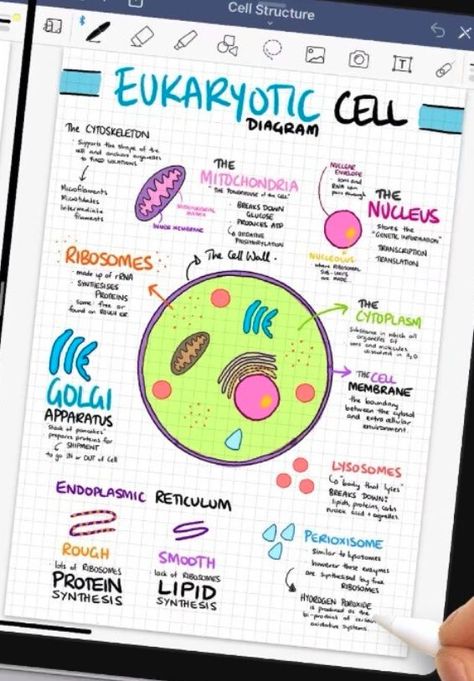 Cell Structure
EUKARYOTIC CELL
DIAGRAM
The CYTOSKELETON
Supports the shape of the
cell and anchors organelles
to fixed locations.
Microfilaments
Microtubules
Intermediate
filaments
THE
MITOCHONDRIA
"THE POWERHOUSE of the CELL"
BREAKS DOWN
GLUCOSE
PRODUCES ATP
OXIDATIVE
PHOSPHORYLATION
INNER MEMBRANE
NUCLEAR
ENVELOPE
Ions and
RNA can
pass through
THE
NUCLEUS
stores the
"GENETIC INFORMATION"
TRANSCRIPTION
TRANSLATION
NUCLEOLUS
where RIBOSOMAL
SUB-UNITS
are MADE
RIBOSOMES
made up of rRNA
SYNTHESISES
PROTEINS
some free or
found on ROUGH ER
The Cell Wall
THE
CYTOPLASM
Substance in which all
organelles or
ions and molecules
dissolved in H2O
GOLGI
APPARATUS
"stack of pancakes"
prepares proteins for
SHIPMENT
to go IN or OUT of Cell
THE CELL
MEMBRANE
the boundary
between the cytosol
and extracellular
environment
LYSOSOMES
"body that lyses"
BREAKS DOWN:
lipids, proteins, carbs
nucleic acid + organelles
ENDOPLASMIC RETICULUM
ROUGH
lots of RIBOSOMES
PROTEIN
SYNTHESIS
SMOOTH
lack of RIBOSOMES
LIPID
SYNTHESIS
PERIOXISOME
Similar to lysosomes
however these enzymes
are synthesised by free
RIBOSOMES
HYDROGEN POROXIDE
is produced as the
bi-product of certain
oxidative systems